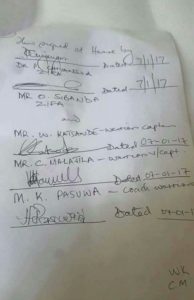 signed at Harare by
Dated 7/1/17
ZIFA
Dated 7/1/17
MR. O. SIBANDA
ZIFA
and
MR. W. KATSANDE - warriors captain
Dated 07-01-17
MR. C. MALAJILA - warriors v/capt.
Dated 07-01-17
M. K. PASUWA - Coach warriors
Dated 07-01-
WK
CM